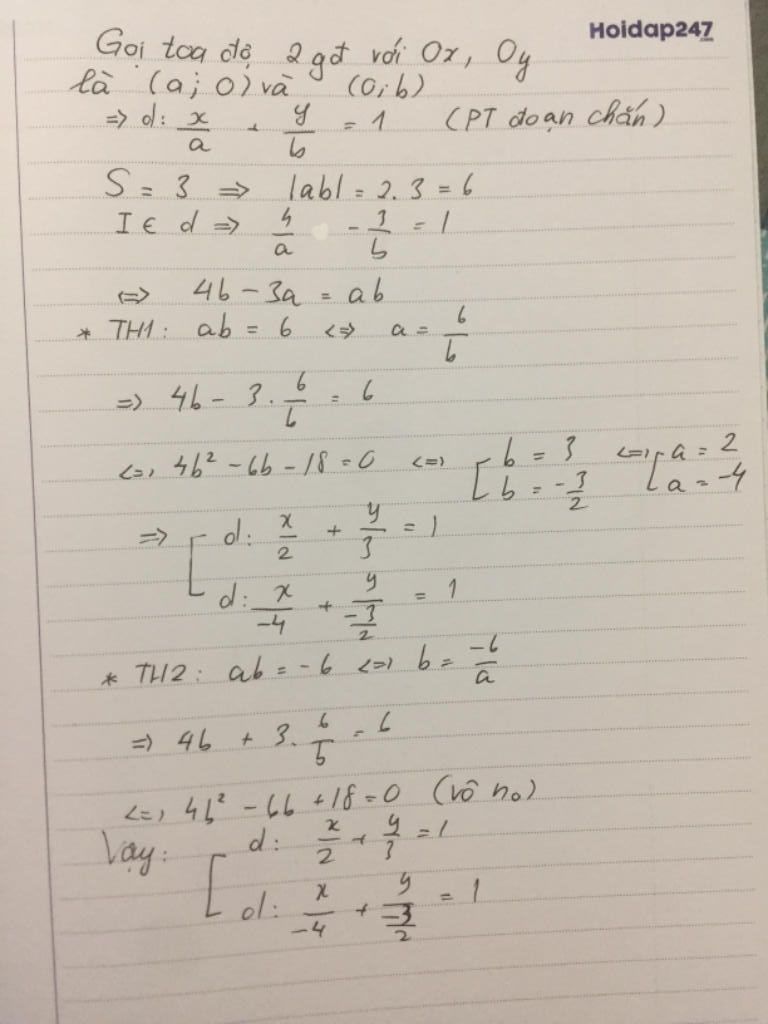 Hoidap247
Gọi toạ độ 2 gđ với Ox, Oy
là (a; 0) và (0; b)
=> d: x/a + y/b = 1 (PT đoạn chắn)
S = 3 => |ab| = 2.3 = 6
I ∈ d => 4/a - 3/b = 1
<=> 4b - 3a = ab
* TH1: ab = 6 <=> a = 6/b
=> 4b - 3 . 6/b = 6
<=> 4b² - 6b - 18 = 0 <=> [ b = 3 <=> [ a = 2
b = -3/2 a = -4
=> [ d: x/2 + y/3 = 1
d: x/-4 + y/(-3/2) = 1
* TH2: ab = -6 <=> b = -6/a
=> 4b + 3. 6/b = 6
<=> 4b² - 6b + 18 = 0 (vô no)
Vạy: [ d: x/2 + y/3 = 1
d: x/-4 + y/(-3/2) = 1